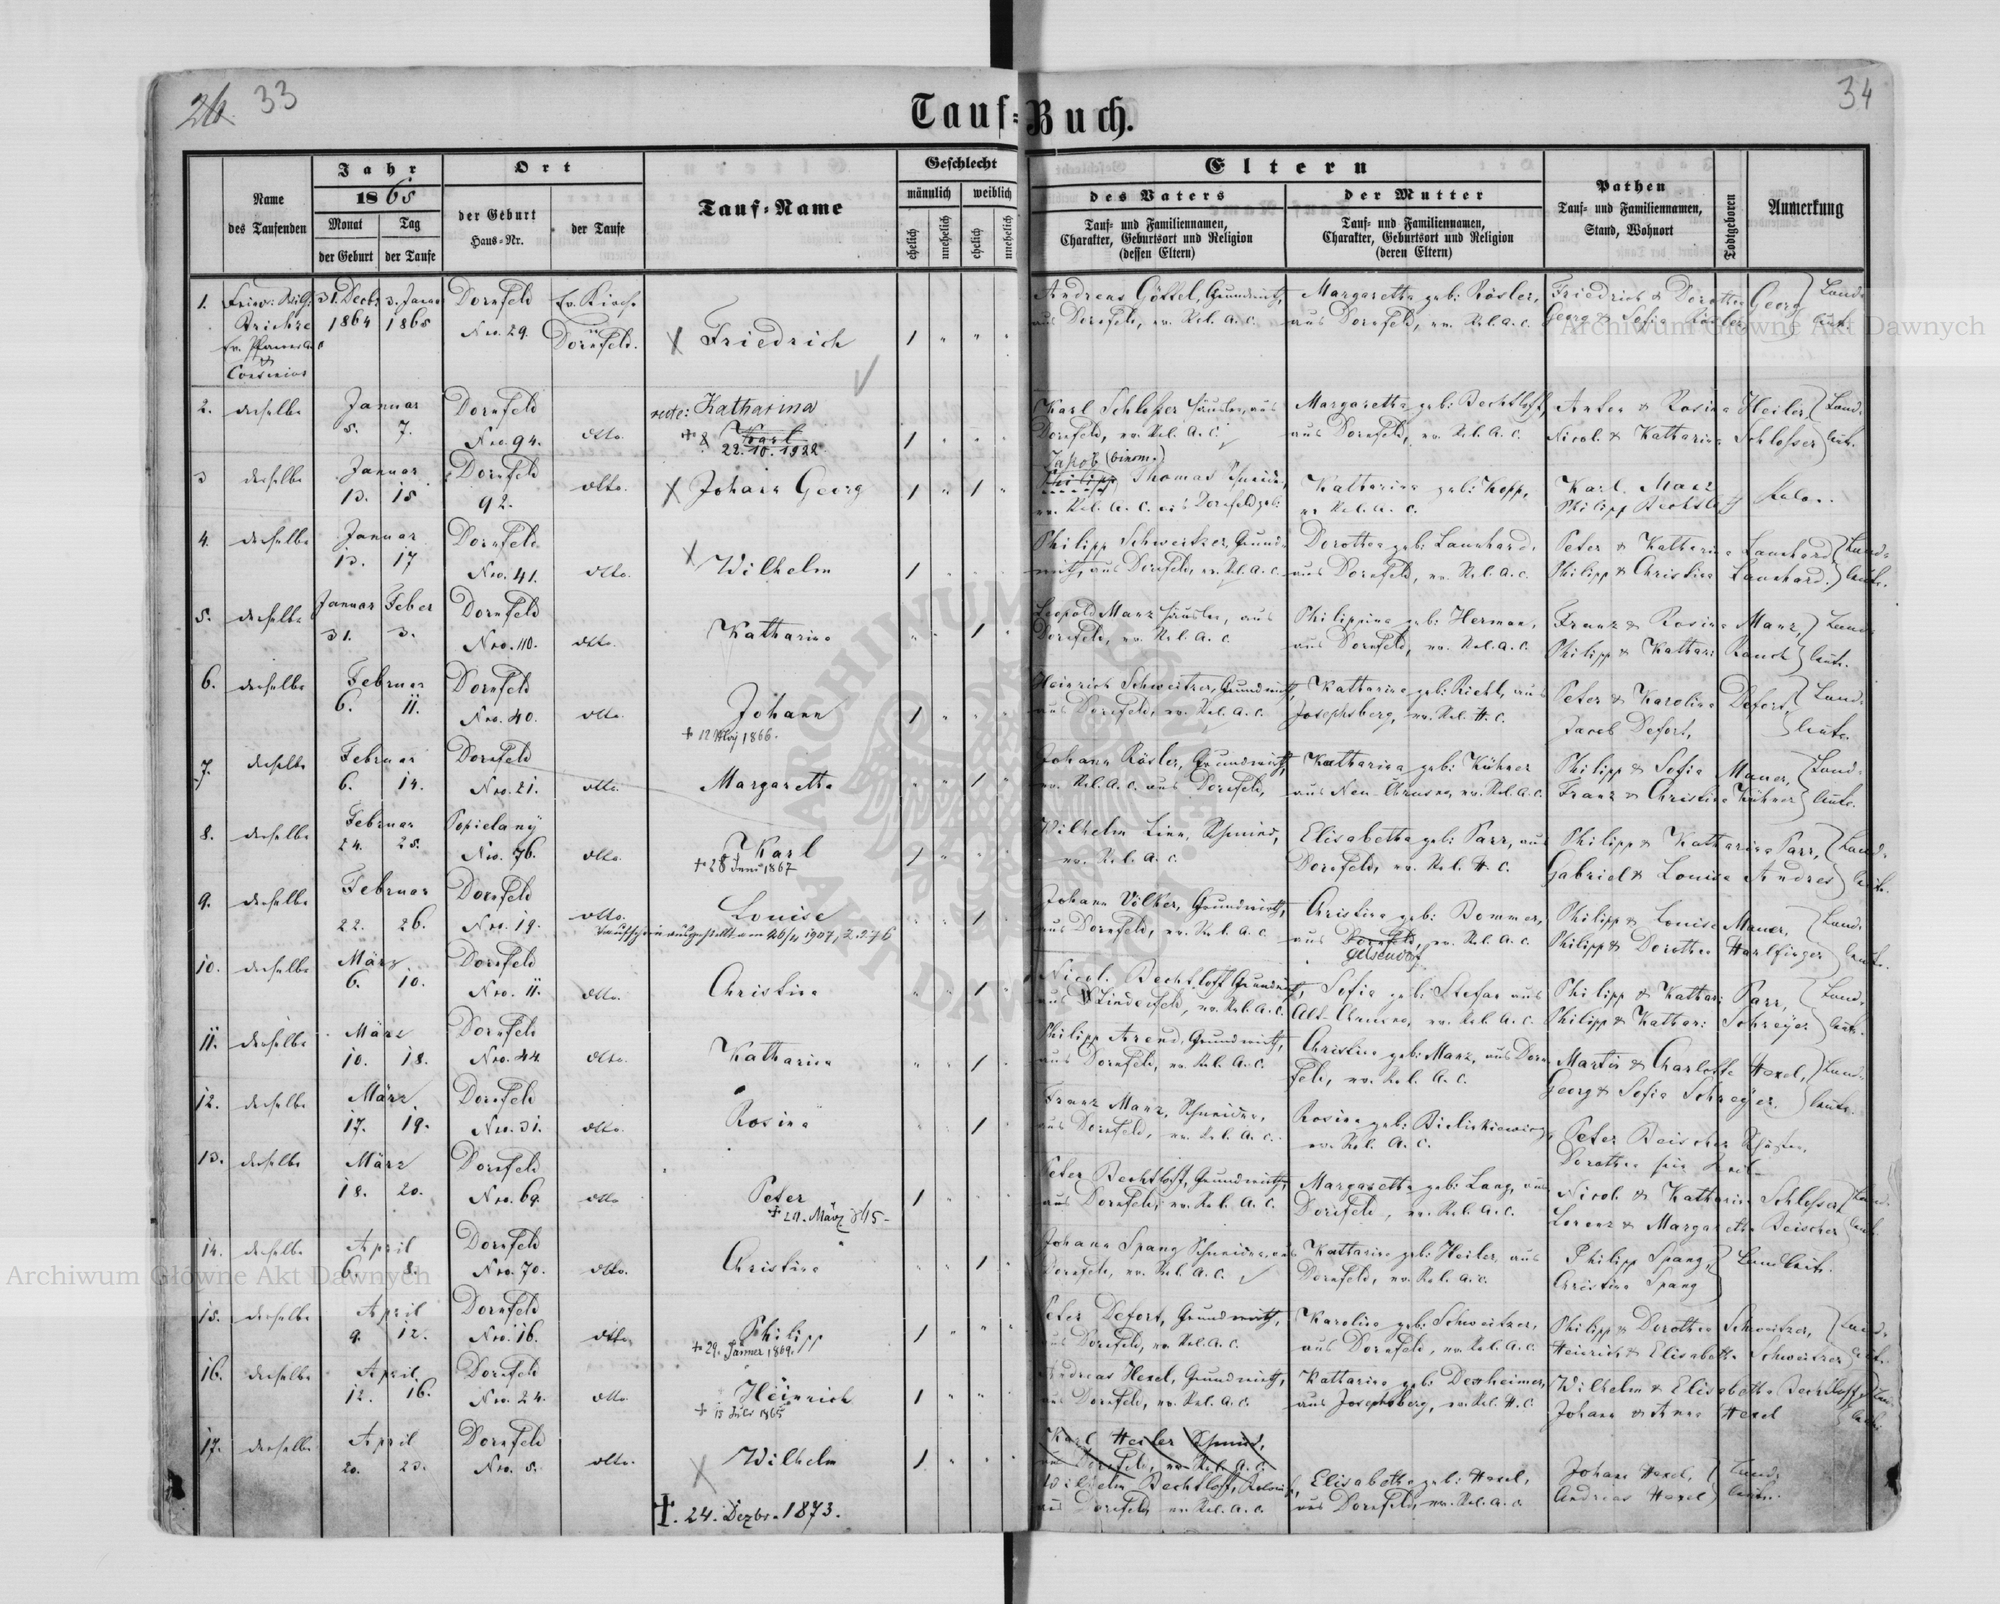 33
34
Tauf=Buch.
Name
des Taufenden
Jahr
1865
Monat
der Geburt
Tag
der Taufe
Ort
der Geburt
Haus=Nr.
der Taufe
Tauf=Name
Geschlecht
männlich
weiblich
ehelich
unehelich
ehelich
unehelich
Eltern
des Vaters
Tauf= und Familiennamen,
Charakter, Geburtsort und Religion
(dessen Eltern)
der Mutter
Tauf= und Familiennamen,
Charakter, Geburtsort und Religion
(deren Eltern)
Pathen
Tauf= und Familiennamen,
Stand, Wohnort
Todtgeboren
Anmerkung
1.
31. Decb. 3. Januar
1864 1865
Dornfeld
Nro. 29.
Ev. Kirche
Dornfeld.
Friedrich
Andreas Göttel, Grundwirth,
aus Dornfeld, ev. Rel. A. C.
Margaretha geb: Rösler,
aus Dornfeld, ev. Rel. A. C.
2. derselbe
Januar
5. 7.
Dornfeld
Nro. 94.
dtto.
recte: Katharina
Karl
22. 10. 1922
Karl Schlosser
Dornfeld, ev. Rel. A. C.
Margaretha geb: Bechtloff,
aus Dornfeld, ev. Rel. A. C.
Nicol. & Katharina Schlosser
3 derselbe
Januar
13. 15
Dornfeld
92.
dtto.
Johann Georg
Jakob
Philipp Thomas
Katharina geb: Kopp,
ev. Rel. A. C.
Karl Manz
4. derselbe
Januar
13. 17
Dornfeld
Nro. 41.
dtto.
Wilhelm
Philipp Schweitzer, Grund=
wirth, aus Dornfeld, ev. Rel. A. C.
Dorothea geb: Launhard,
aus Dornfeld, ev. Rel. A. C.
Peter & Katharina Launhard
Philipp & Christina Launhard.
Land=
leute.
5. derselbe
Januar Feber
31. 3.
Dornfeld
Nro. 110.
dtto.
Katharina
Leopold Manz
Dornfeld, ev. Rel. A. C.
Philippina geb: Herman,
aus Dornfeld, ev. Rel. A. C.
Franz & Rosina Manz,
Philipp & Kathari Rauch
Land=
leute.
6. derselbe
Februar
6. 11.
Dornfeld
Nro. 40.
dtto.
Johann
+ 12 May 1866.
Heinrich Schweitzer, Grundwirth,
aus Dornfeld, ev. Rel. A. C.
Katharina geb: Riehl, aus
Josephsberg, ev. Rel. H. C.
Peter & Karolina Defort,
Jacob Defort,
Land=
leute.
7. derselbe
Februar
6. 14.
Dornfeld
Nro. 21.
dtto.
Margaretha
Johann Rösler, Grundwirth,
ev. Rel. A. C. aus Dornfeld,
Katharina geb: Kühner
Philipp & Sofia Mauer,
Franz & Christina Kühner
Land=
leute.
8. derselbe
Februar
24. 25.
Popielany
Nro. 76.
dtto.
Karl
+ 28 Juni 1867
Wilhelm Linn, Schmied,
ev. Rel. A. C.
Elisabetha geb: Parr, aus
Dornfeld, ev. Rel. H. C.
Philipp & Katharina Parr,
Gabriel & Louise Andres
Land=
leute.
9. derselbe
Februar
22. 26.
Dornfeld
Nro. 19.
dtto.
Louise
Taufschein ausgestellt am 26/4 1907, Z. 276
Johann Völker, Grundwirth,
aus Dornfeld, ev. Rel. A. C.
Christina geb: Bommer,
aus Dornfeld, ev. Rel. A. C.
Gelsendorf
Philipp & Louise Mauer,
Philipp & Dorothea Harlfinger
Land=
leute.
10. derselbe
März
6. 10.
Dornfeld
Nro. 11.
dtto.
Christina
Nicol. Bechtloff Grundwirth,
aus Lindenfeld, ev. Rel. A. C.
Sofia geb: Stefan aus
Philipp & Kathari Parr,
Philipp & Kathari Schreyer
Land=
leute.
11. derselbe
März
10. 18.
Dornfeld
Nro. 44
dtto.
Katharina
Philipp Arend, Grundwirth,
aus Dornfeld, ev. Rel. A. C.
Christina geb: Manz, aus Dorn=
feld, ev. Rel. A. C.
Martin & Charlotte Hexel,
Georg & Sofia Schreyer.
Land=
leute.
12. derselbe
März
17. 19.
Dornfeld
Nro. 31.
dtto.
Rosina
Franz Manz, Schneider,
aus Dornfeld, ev. Rel. A. C.
ev. Rel. A. C.
13. derselbe
März
18. 20.
Dornfeld
Nro. 69.
dtto
Peter
Peter Bechtloff, Grundwirth,
aus Dornfeld, ev. Rel. A. C.
Margaretha geb: Lang, aus
Dornfeld, ev. Rel. A. C.
Nicol. & Katharina Schlosser
Lorenz & Margaretha Beischer
14. derselbe
April
6. 8.
Dornfeld
Nro. 70.
dtto.
Christina
Johann Spang Schneider, aus
Dornfeld, ev. Rel. A. C.
Katharina geb: Heiler, aus
Dornfeld, ev. Rel. A. C.
Philipp Spang,
Christina Spang
Landleute.
15. derselbe
April
9. 12.
Dornfeld
Nro. 16.
dtto
Philipp
+ 29. Jänner 1869.
Peter Defort, Grundwirth,
aus Dornfeld, ev. Rel. A. C.
Karolina geb: Schweitzer,
aus Dornfeld, ev. Rel. A. C.
Philipp & Dorothea Schweitzer,
Heinrich & Elisabetha Schweitzer
16. derselbe
April
12. 16.
Dornfeld
Nro. 24.
dtto
Heinrich
+ 15 Juli 1865
Andreas Hexel, Grundwirth,
aus Dornfeld, ev. Rel. A. C.
Katharina geb: Dexheimer,
aus Josephsberg, ev. Rel. H. C.
Wilhelm & Elisabetha Bechtloff
Johann & Anna Hexel
17. derselbe
April
20. 23.
Dornfeld
Nro. 5.
dtto.
Wilhelm
+. 24. Dezbr. 1873.
Karl Heiler Schmied,
aus Dornfeld, ev. Rel. A. C.
Wilhelm Bechtloff,
aus Dornfeld, ev. Rel. A. C.
Elisabetha geb: Hexel,
aus Dornfeld, ev. Rel. A. C.
Johann Hexel,
Andreas Hexel
Land=
leute.
Archiwum Główne Akt Dawnych
Archiwum Główne Akt Dawnych
ARCHIWUM GŁÓWNE AKT DAWNYCH